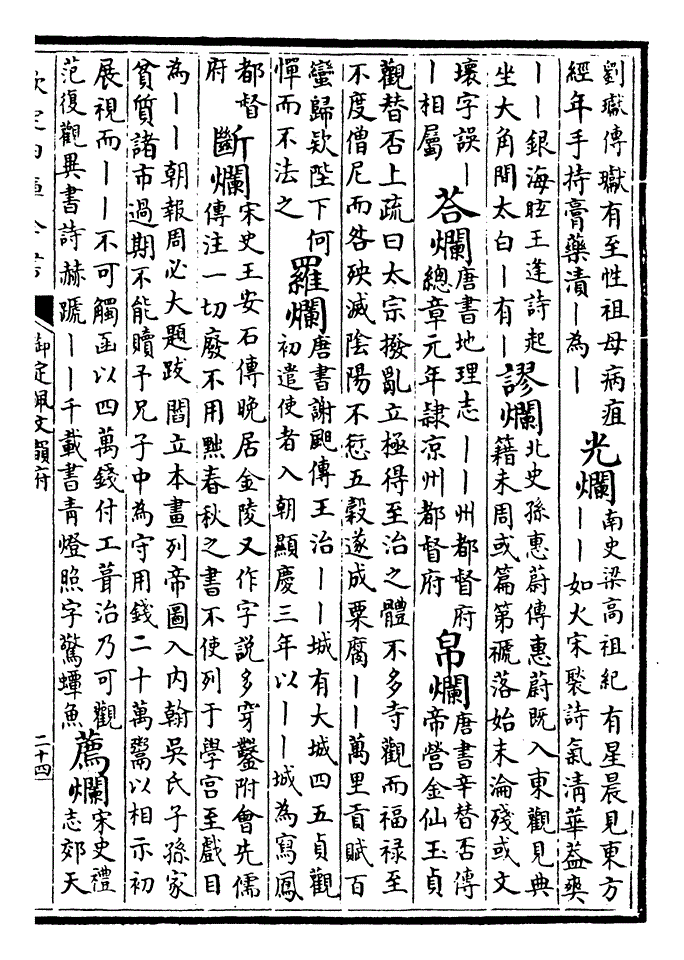 劉瓛傳瓛有至性祖母病疽
經年手持膏藥漬丨為丨
光爛
南史梁高祖紀有星晨見東方
丨丨如火宋褧詩氣清華蓋爽
丨丨銀海眩王逢詩起
坐大角間太白丨有丨
謬爛
北史孫惠蔚傳惠蔚既入東觀見典
籍未周或篇第褫落始末淪殘或文
壞字誤丨
丨相屬
荅爛
唐書地理志丨丨州都督府
總章元年隸凉州都督府
帛爛
唐書辛替否傳
帝營金仙玉貞
觀替否上疏曰太宗撥亂立極得至治之體不多寺觀而福禄至
不度僧尼而咎殃滅陰陽不愆五穀遂成粟腐丨丨萬里貢賦百
蠻歸欵陛下何
憚而不法之
羅爛
唐書謝䫻傳王治丨丨城有大城四五貞觀
初遣使者入朝顯慶三年以丨丨城為寫鳳
都督
府
斷爛
宋史王安石傳晚居金陵又作字說多穿鑿附會先儒
傳注一切廢不用黜春秋之書不使列于學宫至戲目
為丨丨朝報周必大題跋閻立本畫列帝圖入内翰吳氏子孫家
貧質諸市過期不能贖予兄子中為守用錢二十萬鬻以相示初
展視而丨丨不可觸函以四萬錢付工葺治乃可觀
范復觀異書詩赫蹏丨丨千載書青燈照字驚蟫魚
薦爛
宋史禮
志郊天
欽定四庫全書
御定佩文韻府
二十四